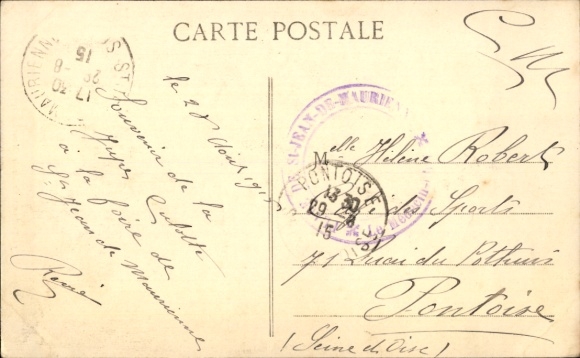 CARTE POSTALE
le 28 Août 1915
Souvenir de la
Jupe Culotte
à la foire de
St Jean de Maurienne
René
Melle Hélène Robert
Sports
71 Quai du Pothuis
Pontoise
(Seine et Oise)
PONTOISE
13 30
29
15
DE ST-JEAN-DE-MAURIENNE
17 30
28 -8
15